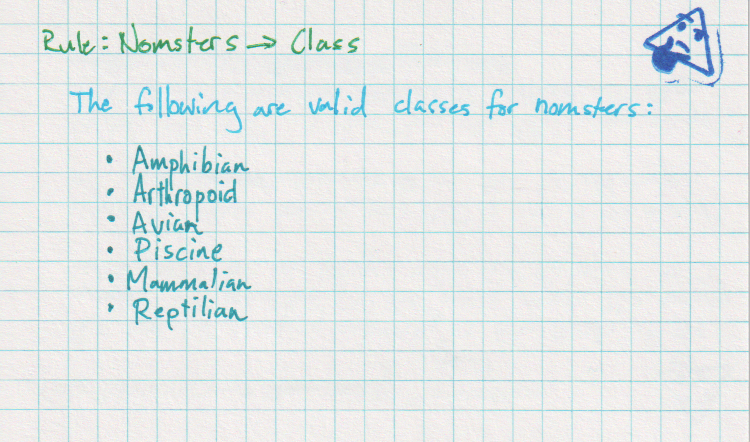 Rule: Nomsters → Class
The following are valid classes for nomsters:
• Amphibian
• Arthropoid
• Avian
• Piscine
• Mammalian
• Reptilian